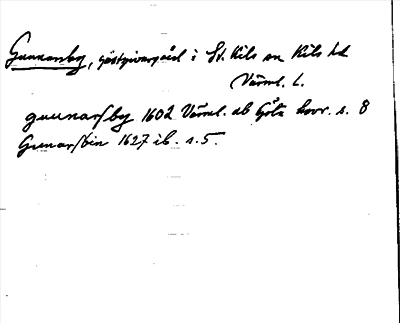 Gunnarsby, gästgivargård i St. Kils sn Kils hd
Värml. l.
gunnarsby 1602 Värml. ab Göta hovr. s. 8
Gunarsbin 1627 ib. s. 5.